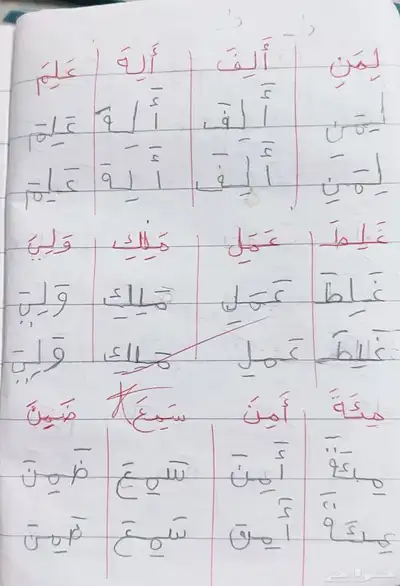 لِمَنِ أَلِفَ أَلِهَ عَلِمَ
لِمَن أَلِفَ أَلِهَ عَلِمَ
لِمَن أَلِفَ أَلِهَ عَلِمَ
غَلِطَ عَمَلِ مَلِكِ وَلِيَ
غَلِطَ عَمَلِ مَلِكِ وَلِيَ
غَلِطَ عَمَلِ مَلِكِ وَلِيَ
مِئَةَ أَمِنَ سَمِعَ ضَمِنَ
مِئَةَ أَمِنَ سَمِعَ ضَمِنَ
مِئَةَ أَمِنَ سَمِعَ ضَمِنَ